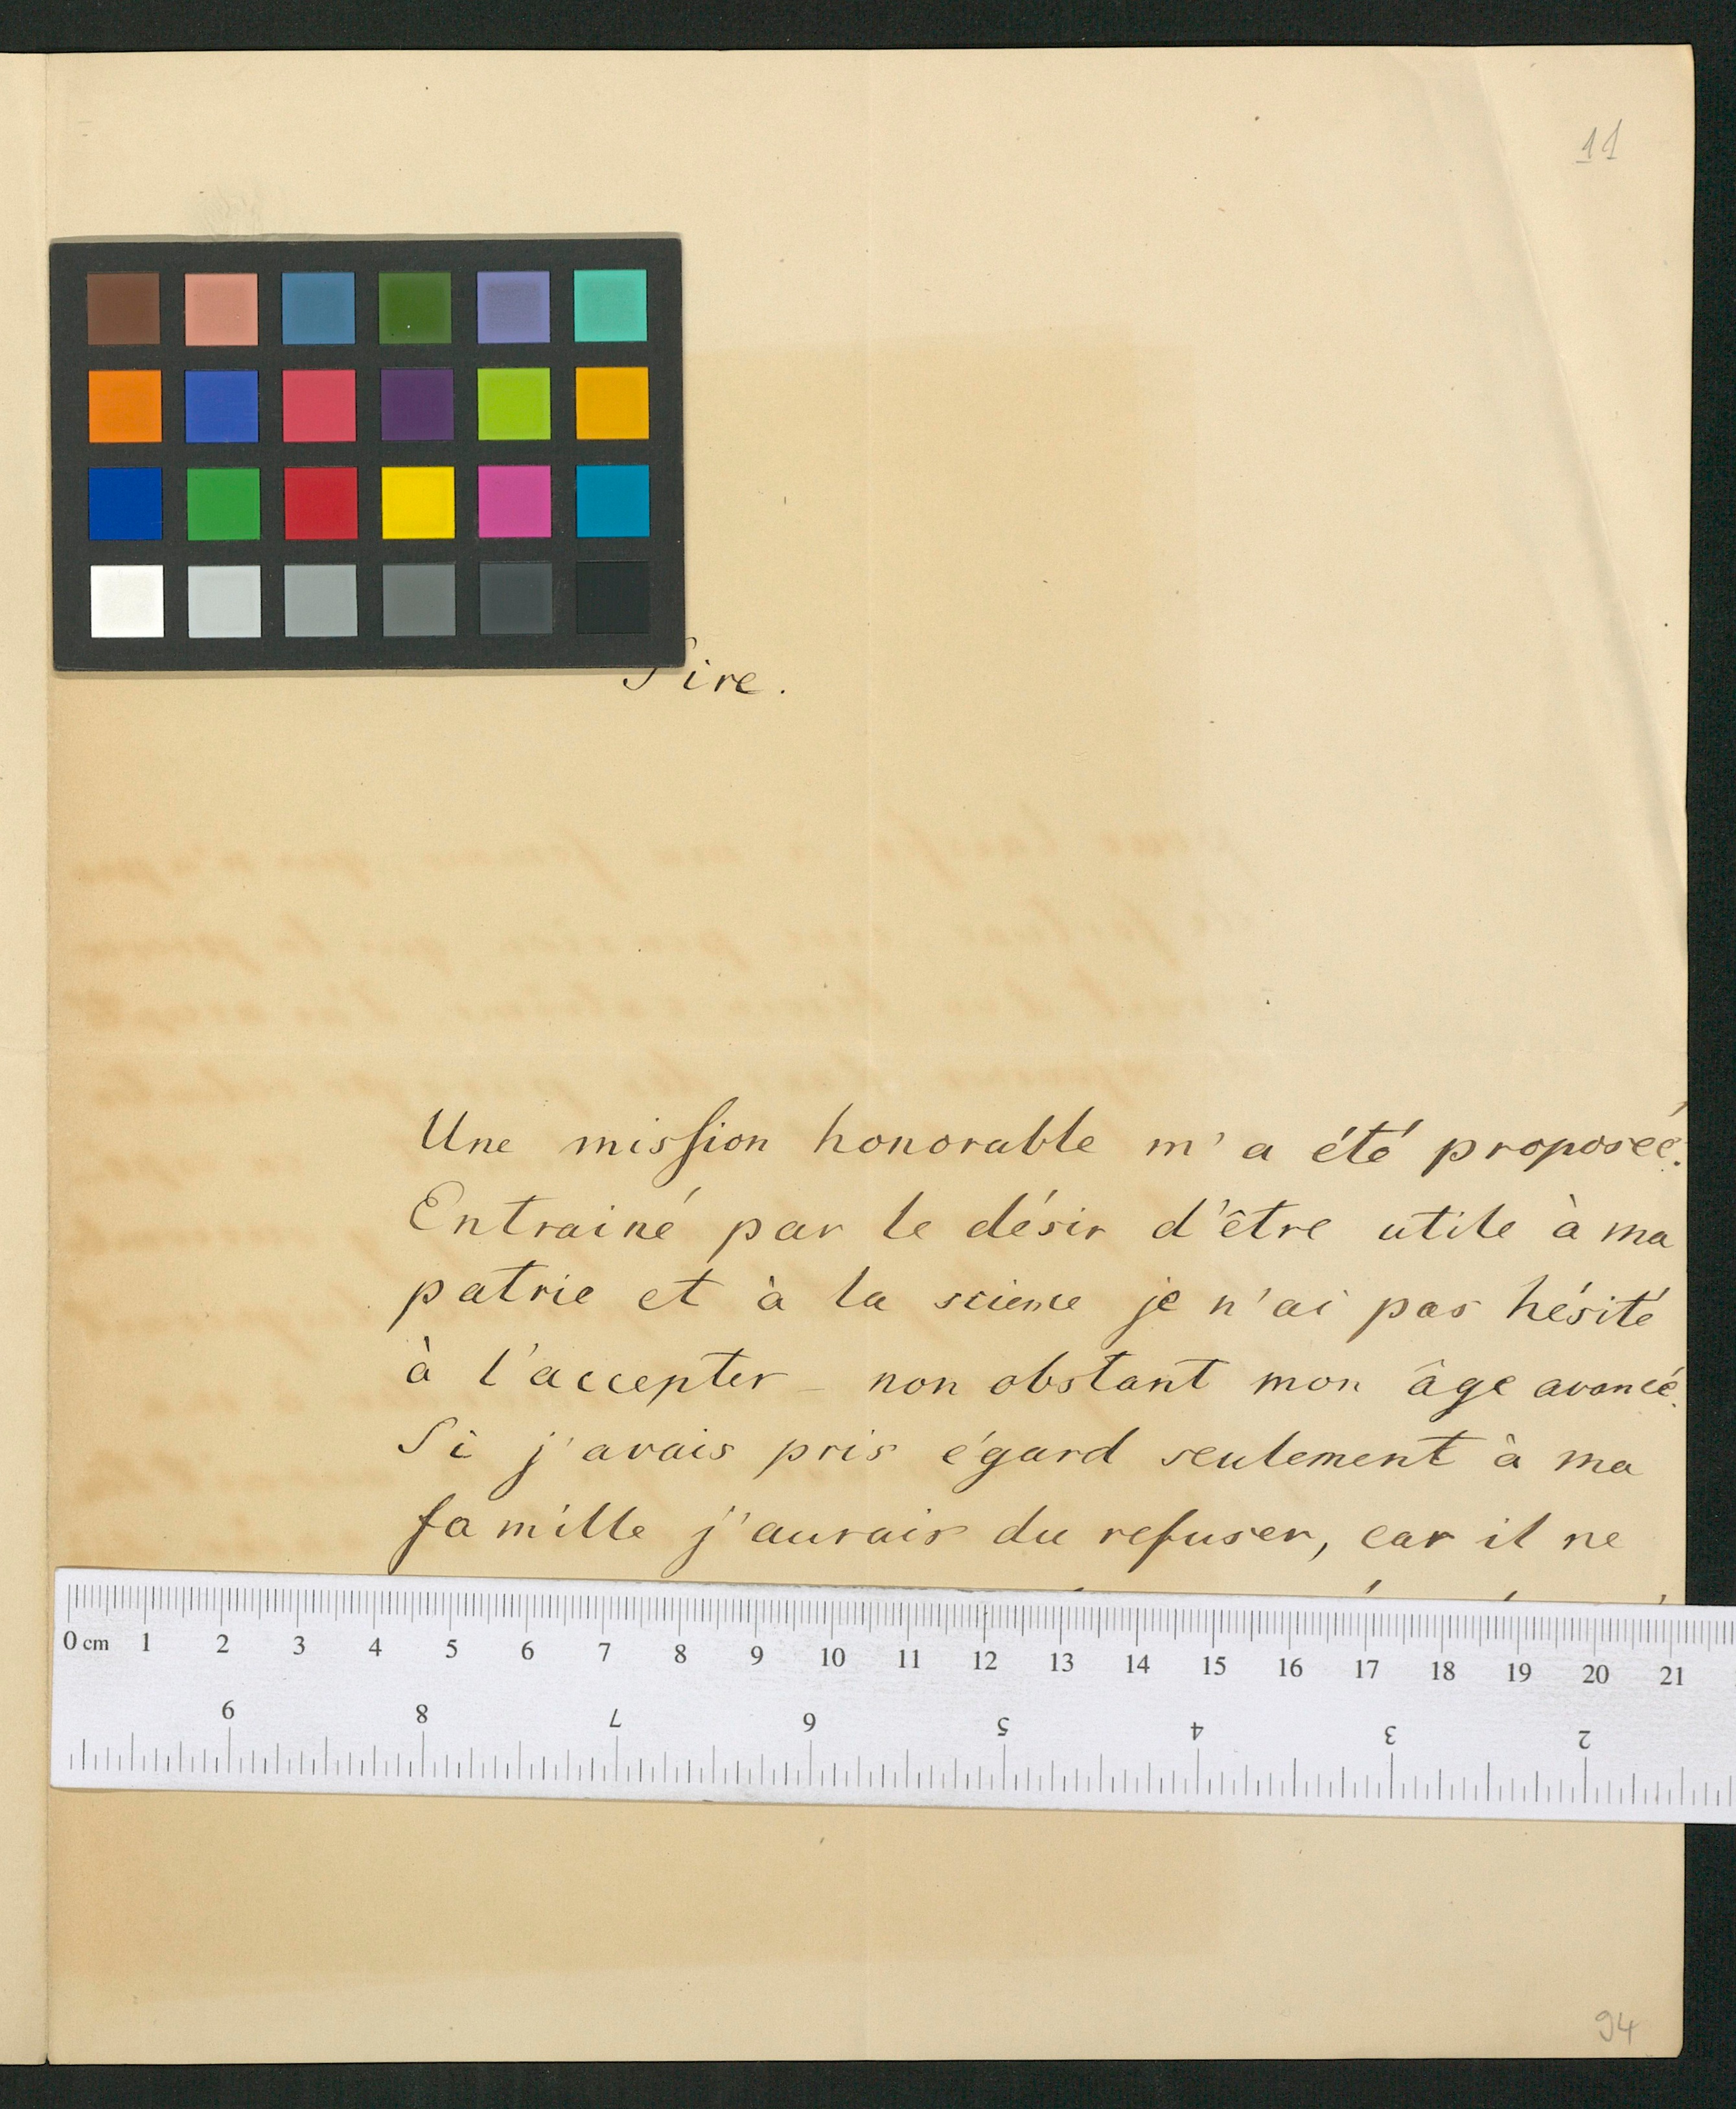 11
Sire.
Une mission honorable m'a été proposée.
Entrainé par le désir d'être utile à ma
patrie et à la science je n'ai pas hésité
à l'accepter - non obstant mon âge avancé.
Si j'avais pris égard seulement à ma
famille j'aurais du refuser, car il ne
0 cm 1 2 3 4 5 6 7 8 9 10 11 12 13 14 15 16 17 18 19 20 21
9 8 7 6 5 4 3 2
94